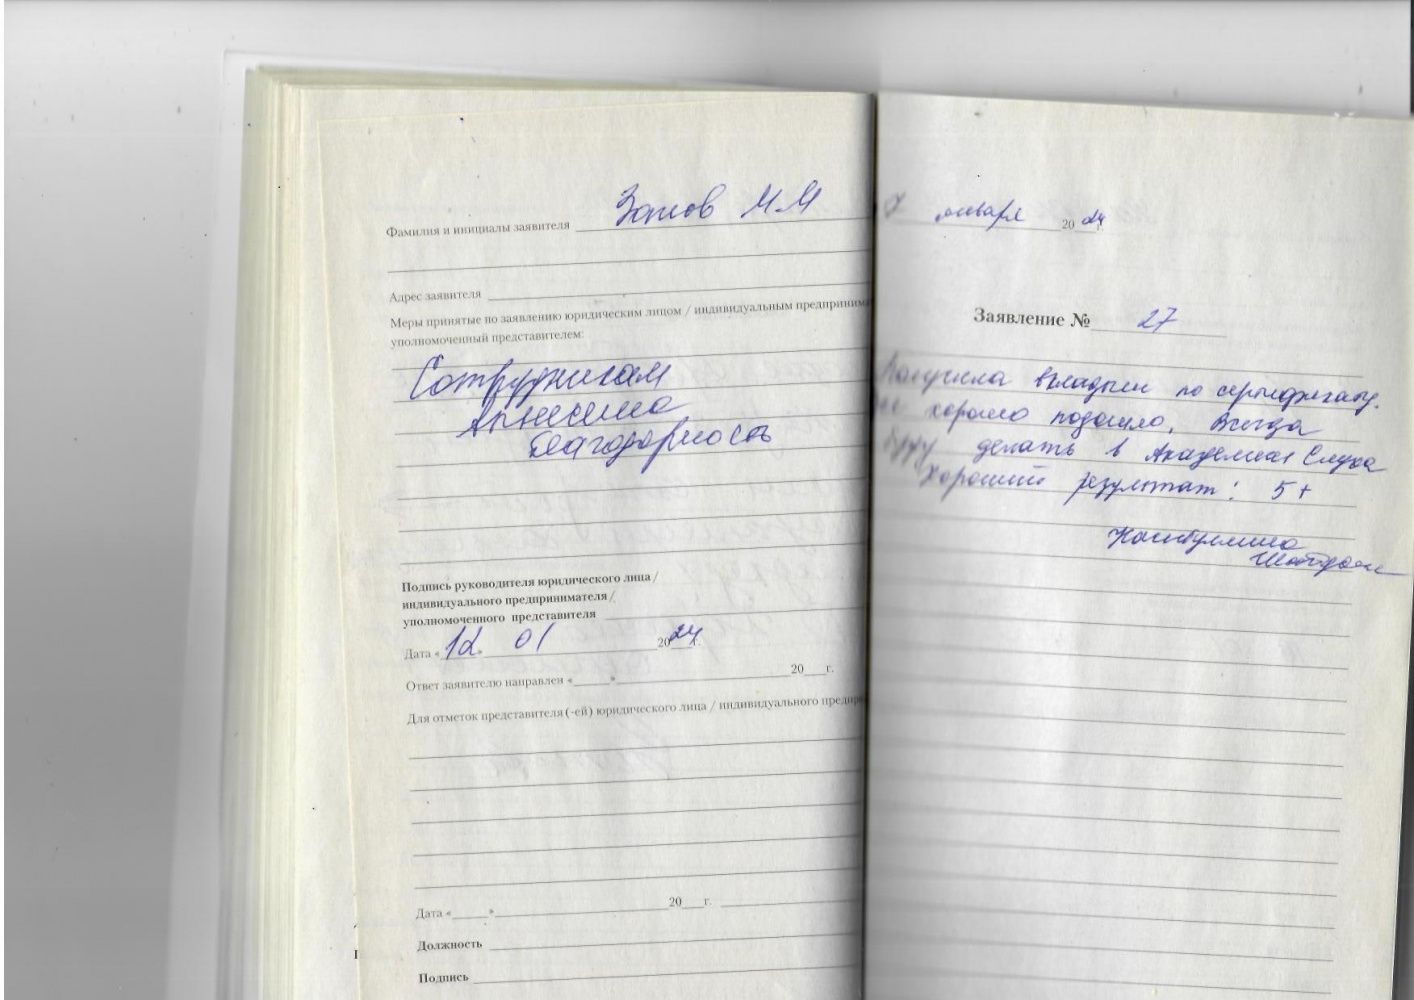 Фамилия и инициалы заявителя Зотов М М
Адрес заявителя
Меры принятые по заявлению юридическим лицом / индивидуальным предпринима
уполномоченный представителем:
Сотрудникам
вынесена
благодарность
Подпись руководителя юридического лица /
индивидуального предпринимателя /
уполномоченного представителя
Дата « 12 » 01 2024 г.
Ответ заявителю направлен «   »   20   г.
Для отметок представителя (-ей) юридического лица / индивидуального предпри
Дата «   »   20   г.
Должность
Подпись
января 2024
Заявление № 27
Получила вкладыш по сертификату.
хорошо подошло. Всегда
буду делать в Академии Слуха
Хороший результат! 5+